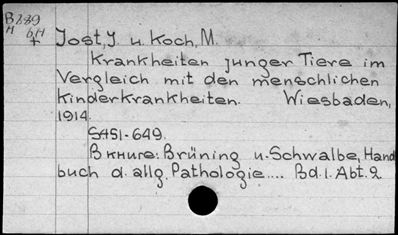 B289
H 6H
+ Jost, J. u. Koch, M.
Krankheiten junger Tiere im
Vergleich mit den menschlichen
Kinderkrankheiten. Wiesbaden,
1914.
S451-649.
В книге: Brüning u. Schwalbe, Hand
buch d. allg. Pathologie.... Bd. 1. Abt. 2